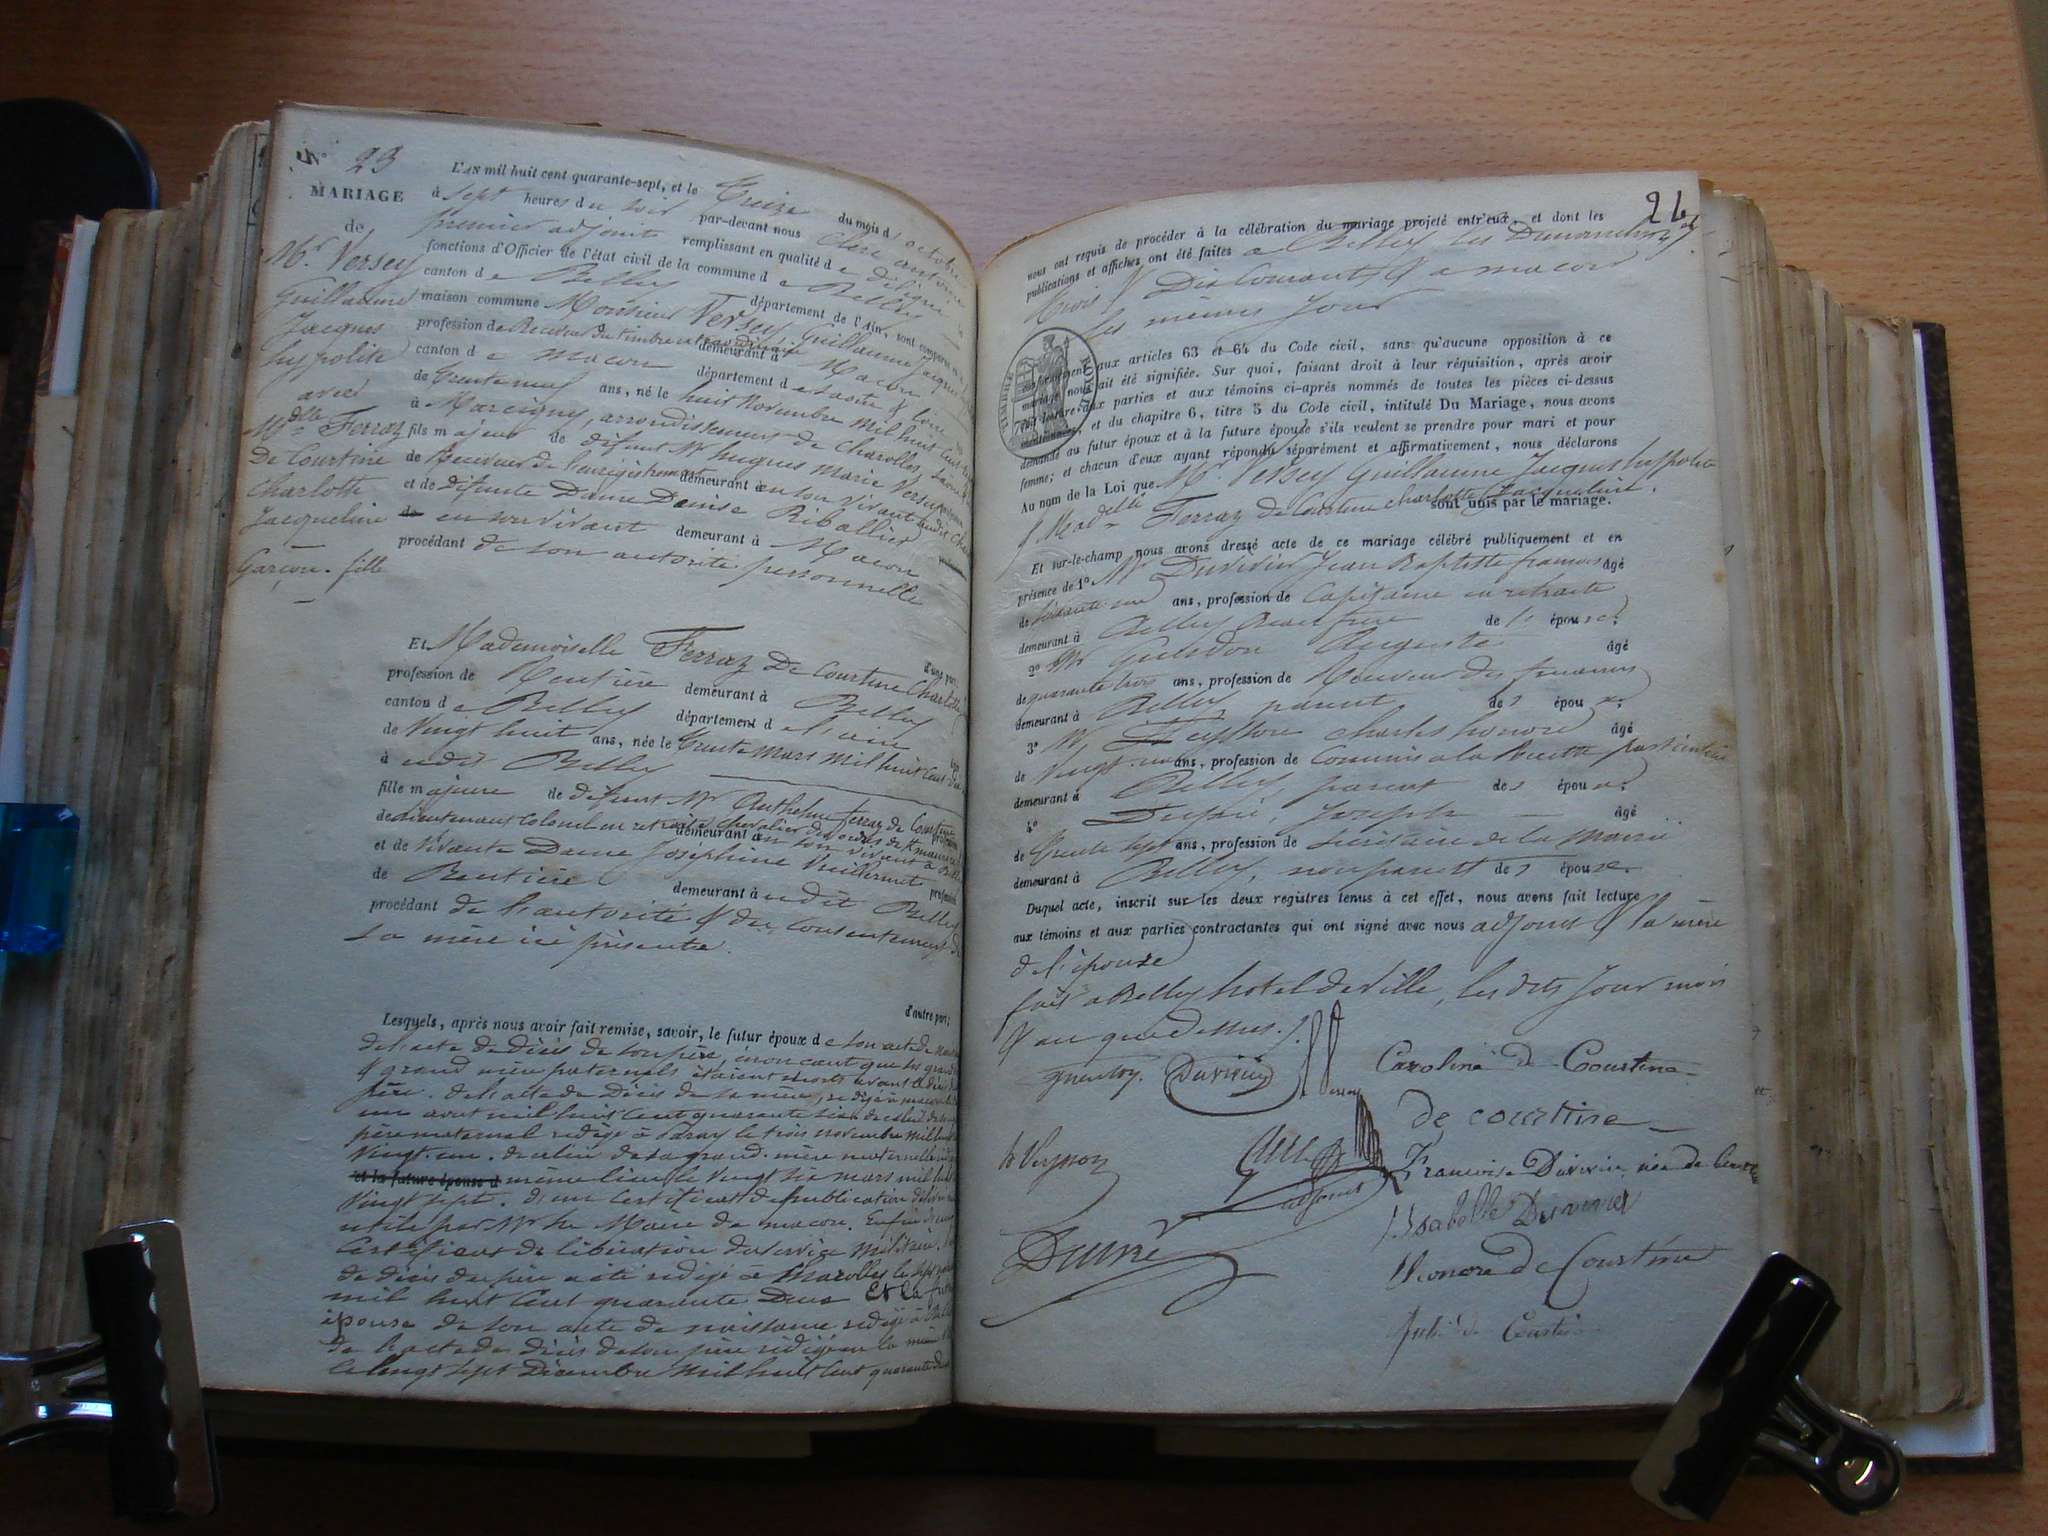 N° 23
MARIAGE
de
Mr. Versey
Guillaume
Jacques
hypolite
avec
Mdlle Ferraz
De Courtine
Charlotte
Jacqueline
Garçon. fille
L'AN mil huit cent quarante-sept, et le Treize du mois d octobre
à sept heures du soir par-devant nous
premier adjoint remplissant en qualité de délégué
fonctions d'Officier de l'état civil de la commune de Belley
canton de Belley département de l'Ain, sont comparus
maison commune Monsieur Versey Guillaume Jacques
profession de Receveur du timbre extraordinaire demeurant à Macon
canton de Macon département de Saône & Loire
de trente neuf ans, né le huit Novembre mil huit cent
à Marcigny, arrondissement de Charolles, Saône
fils majeur de défunt Mr hugues Marie Versey
de Receveur de l'enregistrement demeurant en son vivant
et de défunte Dame Denise Riballier
de en son vivant demeurant à Macon
procédant de son autorité personnelle
d'une part,
Et Mademoiselle Ferraz De Courtine Charlotte
profession de Rentière demeurant à Belley
canton de Belley département de l'ain
de vingt huit ans, née le trente Mars mil huit cent
à udit Belley
fille majeure de défunt Mr Anthelme Ferraz de Courtine
de Lieutenant Colonel en retraite Chevalier des ordres de St maurice
demeurant en son vivant à
et de vivante Dame Joséphine Vuillermet profession
de Rentière demeurant à udit Belley
procédant de l'autorité & du Consentement de
sa mère ici présente.
d'autre part;
Lesquels, après nous avoir fait remise, savoir, le futur époux de son acte de
de l'acte de décès de son père, énonçant que les grand
& grand mère paternels étaient morts avant
père. de l'acte de Décès de sa mère, rédigé à macon
un août mil huit Cent quarante six de celui de
père maternel rédigé à le trois novembre mil huit
vingt un. de celui de sa grand mère maternelle
et la future épouse d même lieu le vingt six mars mil huit
vingt sept. d'un Certificat de publication délivré
utile par Mr le Maire de macon. Enfin d'un
Certificat de libération du service militaire.
de décès du père a été rédigé à Charolles le sept
mil huit Cent quarante Deux Et la future
épouse de son acte de naissance rédigé à
de l'acte de décès de son père rédigé en la même
le vingt sept Décembre mil huit Cent quarante
nous ont requis de procéder à la célébration du mariage projeté entr'eux, et dont les
publications et affiches ont été faites à Belley les Dimanches
trois & Dix Courant & à macon
les mêmes Jour
TIMBRE ROYAL
conformément aux articles 63 et 64 du Code civil, sans qu'aucune opposition à ce
mariage nous ait été signifiée. Sur quoi, faisant droit à leur réquisition, après avoir
fait lecture aux parties et aux témoins ci-après nommés de toutes les pièces ci-dessus
mentionnées, et du chapitre 6, titre 5 du Code civil, intitulé Du Mariage, nous avons
demandé au futur époux et à la future épouse s'ils veulent se prendre pour mari et pour
femme; et chacun d'eux ayant répondu séparément et affirmativement, nous déclarons
Au nom de la Loi que Mr. Versey Guillaume Jacques hypolite
& Madelle Ferraz De Courtine charlotte Jacqueline.
sont unis par le mariage.
Et sur-le-champ nous avons dressé acte de ce mariage célébré publiquement et en
présence de 1° Mr Duvivier Jean Baptiste françois âgé
de ans, profession de Capitaine en retraite
demeurant à Belley Beau frère de l' épouse.
2° Mr Auguste âgé
de quarante trois ans, profession de Receveur des finances
demeurant à Belley parent de s épou x.
3° Mr charles honoré âgé
de vingt ans, profession de Commis à la Recette particulière
demeurant à Belley parent de s épou x.
4° Joseph âgé
de trente sept ans, profession de secrétaire de la Mairie
demeurant à Belley, non parent de s époux.
Duquel acte, inscrit sur les deux registres tenus à cet effet, nous avons fait lecture
aux témoins et aux parties contractantes qui ont signé avec nous adjoint & la mère
de l'épouse
fait à Belley hotel de Ville, les dits Jour mois
& an que dessus.
Duvivier
Caroline de Courtine
de courtine
adjoint
Françoise Duvivier née de
Isabelle Duvivier
Léonore de Courtine
de Courtine